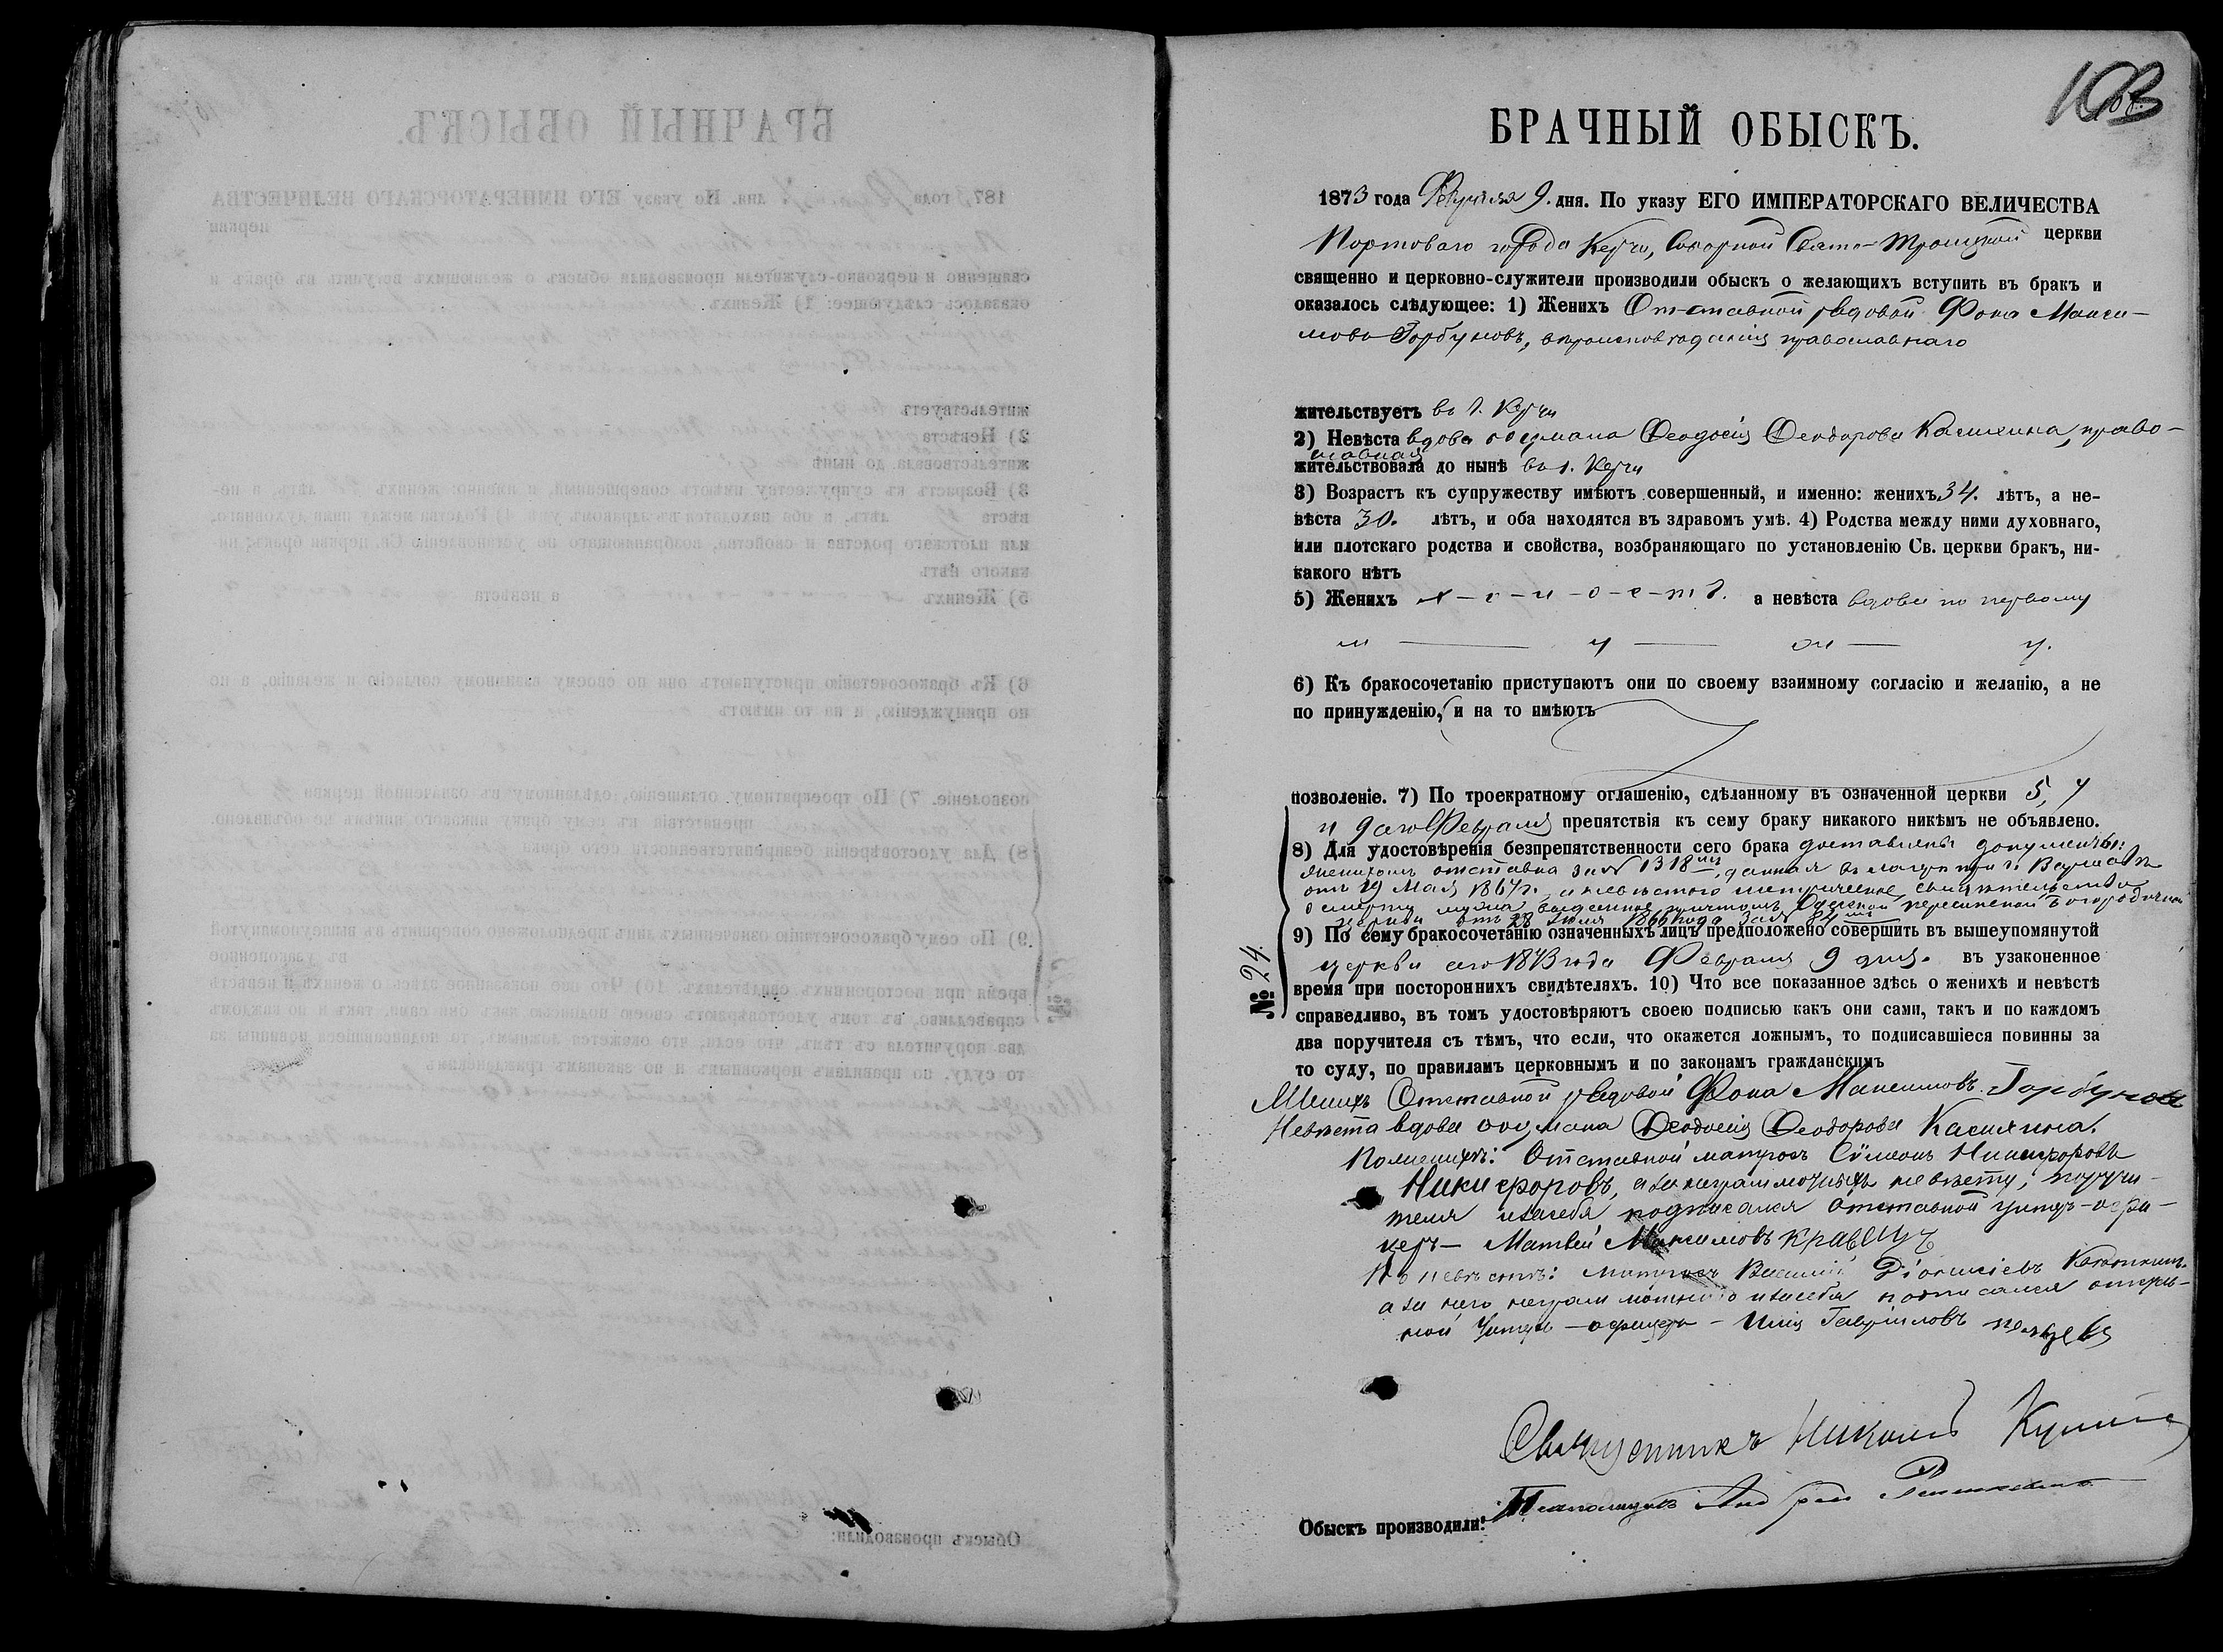 103
БРАЧНЫЙ ОБЫСКЪ.
1873 года Февраля 9. дня. По указу ЕГО ИМПЕРАТОРСКАГО ВЕЛИЧЕСТВА
Портоваго города Керчи, Соборной Свято-Троицкой церкви
священно и церковно-служители производили обыскъ о желающихъ вступить въ бракъ и
оказалось слѣдующее: 1) Женихъ Отставной рядовой Фока Макси-
мовъ Горбуновъ, вѣроисповѣданія православнаго
жительствуетъ въ г. Керчи
2) Невѣста вдова Феодосія Феодорова Касилкина, право-
славная
жительствовала до нынѣ въ г. Керчи
3) Возрастъ къ супружеству имѣютъ совершенный, и именно: женихъ 34. лѣтъ, а не-
вѣста 30. лѣтъ, и оба находятся въ здравомъ умѣ. 4) Родства между ними духовнаго,
или плотскаго родства и свойства, возбраняющаго по установленію Св. церкви бракъ, ни-
какого нѣтъ
5) Женихъ х-о-л-о-с-т ъ. а невѣста вдова по первому
м — у — ж — у.
6) Къ бракосочетанію приступаютъ они по своему взаимному согласію и желанію, а не
по принужденію, и на то имѣютъ
позволеніе. 7) По троекратному оглашенію, сдѣланному въ означенной церкви 5, 7
и 9го Февраля препятствія къ сему браку никакого никѣмъ не объявлено.
8) Для удостовѣренія безпрепятственности сего брака доставлены документы:
женихомъ отставка за № 1318, данная въ при г. Варшавѣ
отъ 19 Мая 1867г., а невѣстою метрическое свидѣтельство
о смерти мужа выданное причтомъ Одесской Богородичной
церкви отъ 28 1866 года за № 84
№ 24.
9) По сему бракосочетанію означенныхъ лицъ предположено совершить въ вышеупомянутой
церкви сего 1873 года Февраля 9 дня. въ узаконенное
время при постороннихъ свидѣтеляхъ. 10) Что все показанное здѣсь о женихѣ и невѣстѣ
справедливо, въ томъ удостовѣряютъ своею подписью какъ они сами, такъ и по каждомъ
два поручителя съ тѣмъ, что если, что окажется ложнымъ, то подписавшіеся повинны за
то суду, по правиламъ церковнымъ и по законамъ гражданскимъ
Женихъ Отставной рядовой Фока Максимовъ Горбуновъ
Невѣста вдова Феодосія Феодорова Касилкина.
По женихѣ: Отставной матросъ Сѵмеонъ Никифоровъ
Никифоровъ, а за неграмотныхъ невѣсту, поручи-
теля и за себя подписался отставной унтеръ-офи-
церъ — Матвей Максимовъ Кравецъ
По невѣстѣ: матросъ Василій Діонисіевъ
а за него неграмотнаго и за себя подписался отстав-
ной Унтеръ-офицеръ — Илія Гавриловъ
Священникъ Николай
Псаломщикъ Андрей
Обыскъ производили: